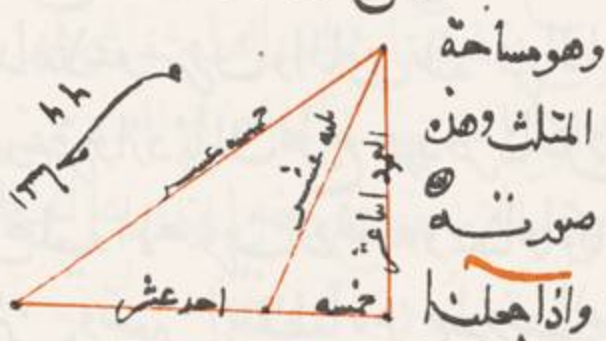 وهو مساحة
المثلث وهذه
صورته
واذا جعلنا
ثلثه عشر
العمود اثنا عشر
احد عشر
خمسه